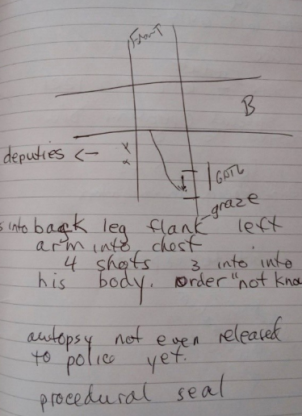 Front
B
deputies <-
x
x
GATE
graze
s into back leg flank left
arm into chest.
4 shots 3 into into
his body. order "not know
autopsy not even released
to police yet.
procedural seal